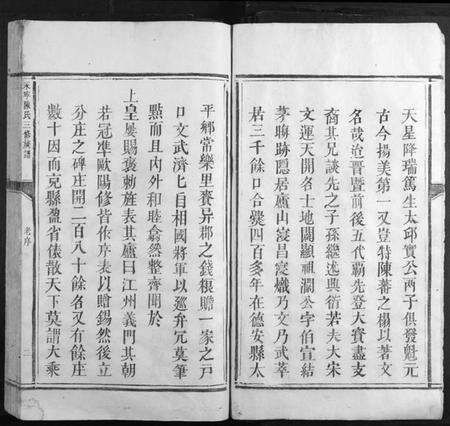 天星降瑞篤生太邱實公两子俱發魁元
古今揚美第一又豈特陳蕃之榻以著文
名哉迨晋暨前後五代覇先登大寶盡支
裔其兄談先之子孫繼述興衍若夫大宋
文運天開名士地闢顯祖灁公字伯宣結
茅聊跡隠居廬山寖昌寖熾乃文乃武萃
居三千餘口合㸑四百多年在德安縣太
平鄉常樂里賚异郡之錢糧贍一家之戸
口文武濟匕自相國將軍以廵弁冗莫筆
㸃而且內外和睦翕然整齊聞於
上皇屡賜褒勅旌表其廬曰江州義門其朝
若冠準歐陽修皆依序表以贈錫然後立
分庄之碑庄開二百八十餘名又有餘庄
數十因而克縣盈省俵散天下莫謂大乘
陳氏三修族譜
老序